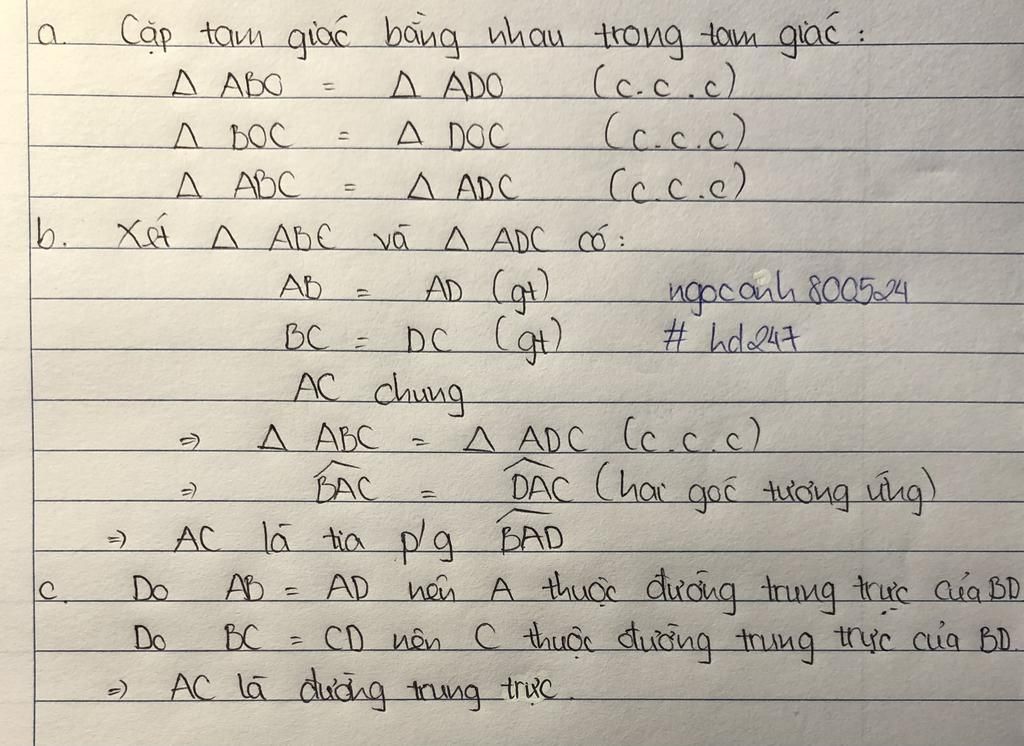 a. Cặp tam giác bằng nhau trong tam giác :
Δ ABO = Δ ADO (c.c.c)
Δ BOC = Δ DOC (c.c.c)
Δ ABC = Δ ADC (c.c.c)
b. Xét Δ ABC và Δ ADC có:
AB = AD (gt) ngocanh800524
BC = DC (gt) # hd247
AC chung
⇒ Δ ABC = Δ ADC (c.c.c)
⇒ \widehat{BAC} = \widehat{DAC} (hai góc tương ứng)
⇒ AC là tia p/g \widehat{BAD}
c. Do AB = AD nên A thuộc đường trung trực của BD
Do BC = CD nên C thuộc đường trung trực của BD.
⇒ AC là đường trung trực.